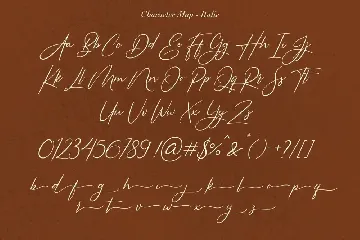 Character Map - Italic
Aa Bb Cc Dd Ee Ff Gg Hh Ii Jj
Kk Ll Mm Nn Oo Pp Qq Rr Ss Tt
Uu Vv Ww Xx Yy Zz
0123456789 !@#$%^&*() +?/[]
b d f g h y k l o p q
r t v w x y s